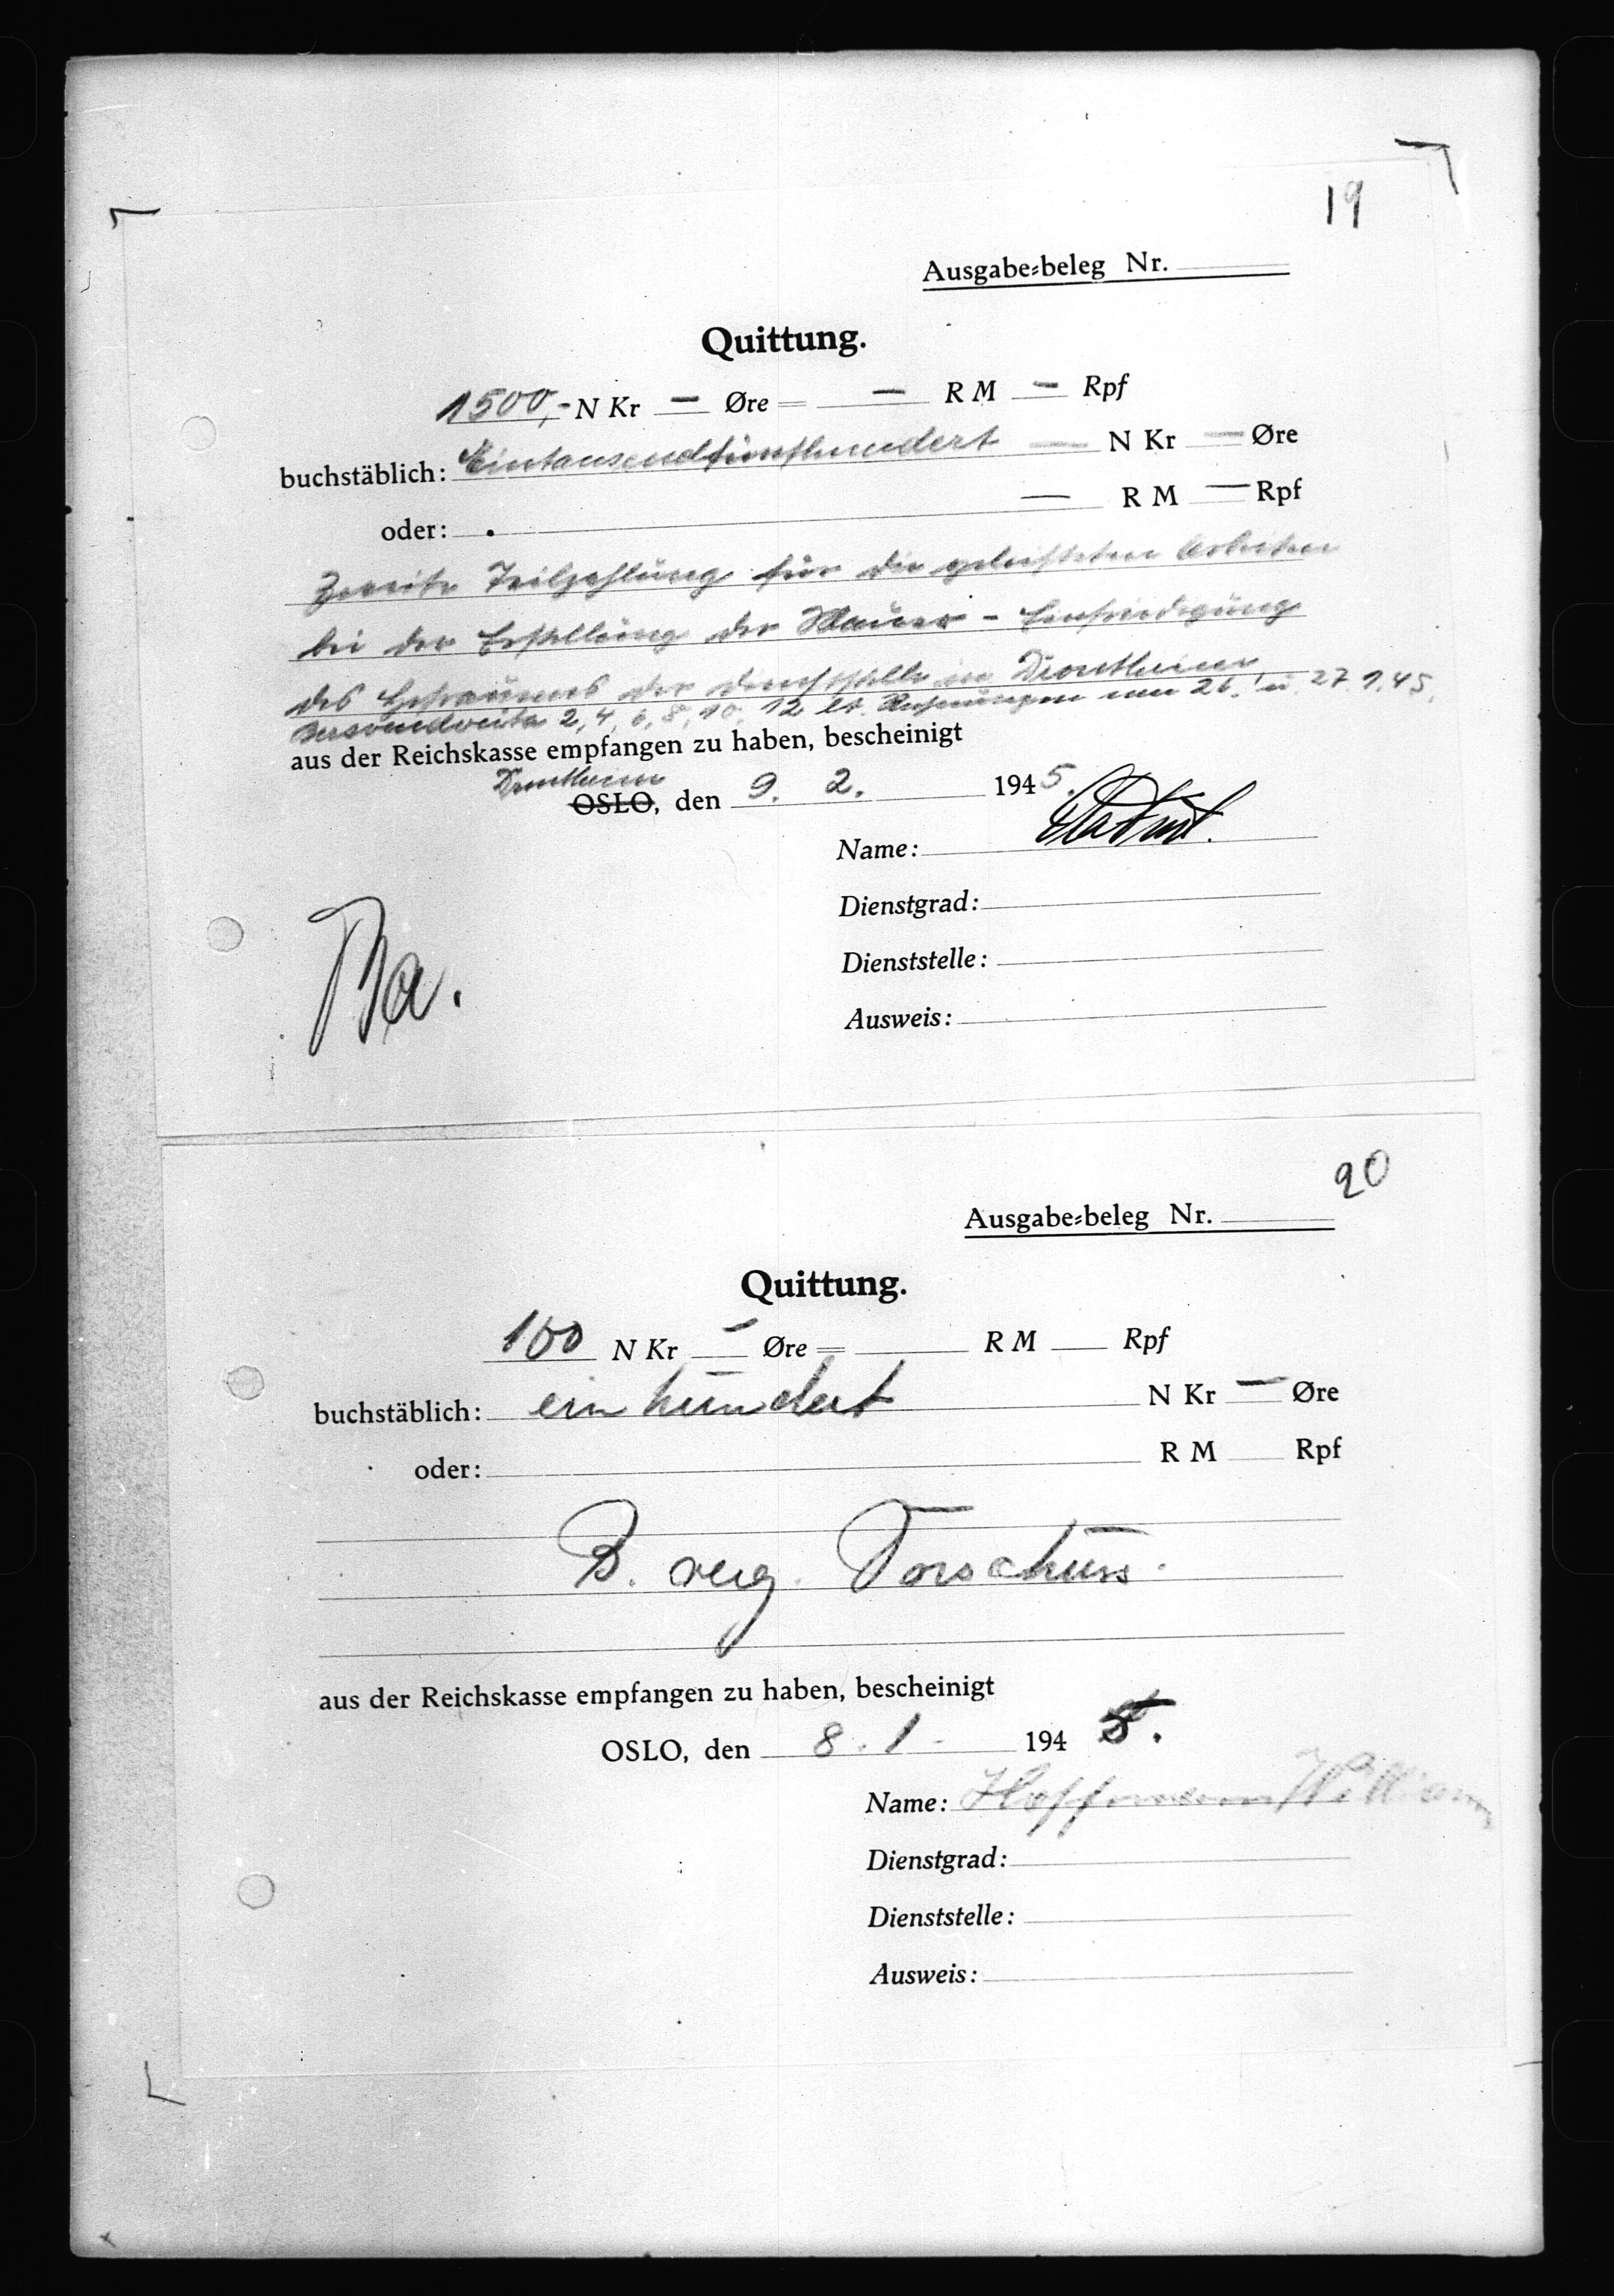 19
Ausgabe=beleg Nr.
Quittung.
1500,- N Kr — Øre = — R M — Rpf
buchstäblich: Eintausendfünfhundert — N Kr — Øre
oder: — R M — Rpf
Zweite Teilzahlung für die geleisteten Arbeiten
bei der Erstellung der Mauer - Einfriedigung
des der Dienststelle in Drontheim
2, 4, 6, 8, 10, 12 lt. Rechnungen vom 26. u. 27.1.45.
aus der Reichskasse empfangen zu haben, bescheinigt
Drontheim
OSLO, den 9. 2. 1945.
Name:
Dienstgrad:
Dienststelle:
Ausweis:
Ba.
20
Ausgabe=beleg Nr.
Quittung.
100 N Kr — Øre = R M Rpf
buchstäblich: ein hundert N Kr — Øre
oder: R M Rpf
B. Vorschuss.
aus der Reichskasse empfangen zu haben, bescheinigt
OSLO, den 8. 1. 1945.
Name: Hoffmann William
Dienstgrad:
Dienststelle:
Ausweis: